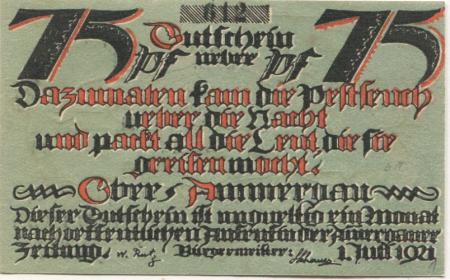 612
75 Gutschein 75
Pf ueber Pf
Dazumalen kam die Pestseuch
ueber die Nacht
und packt all die Leut, die sie
greifen mocht!
Ober-Ammergau
Dieser Gutschein ist ungueltig ein Monat
nach oeffentlichem Aufruf in der Ammergauer
Zeitung. Bürgermeister: 1. Juli 1921